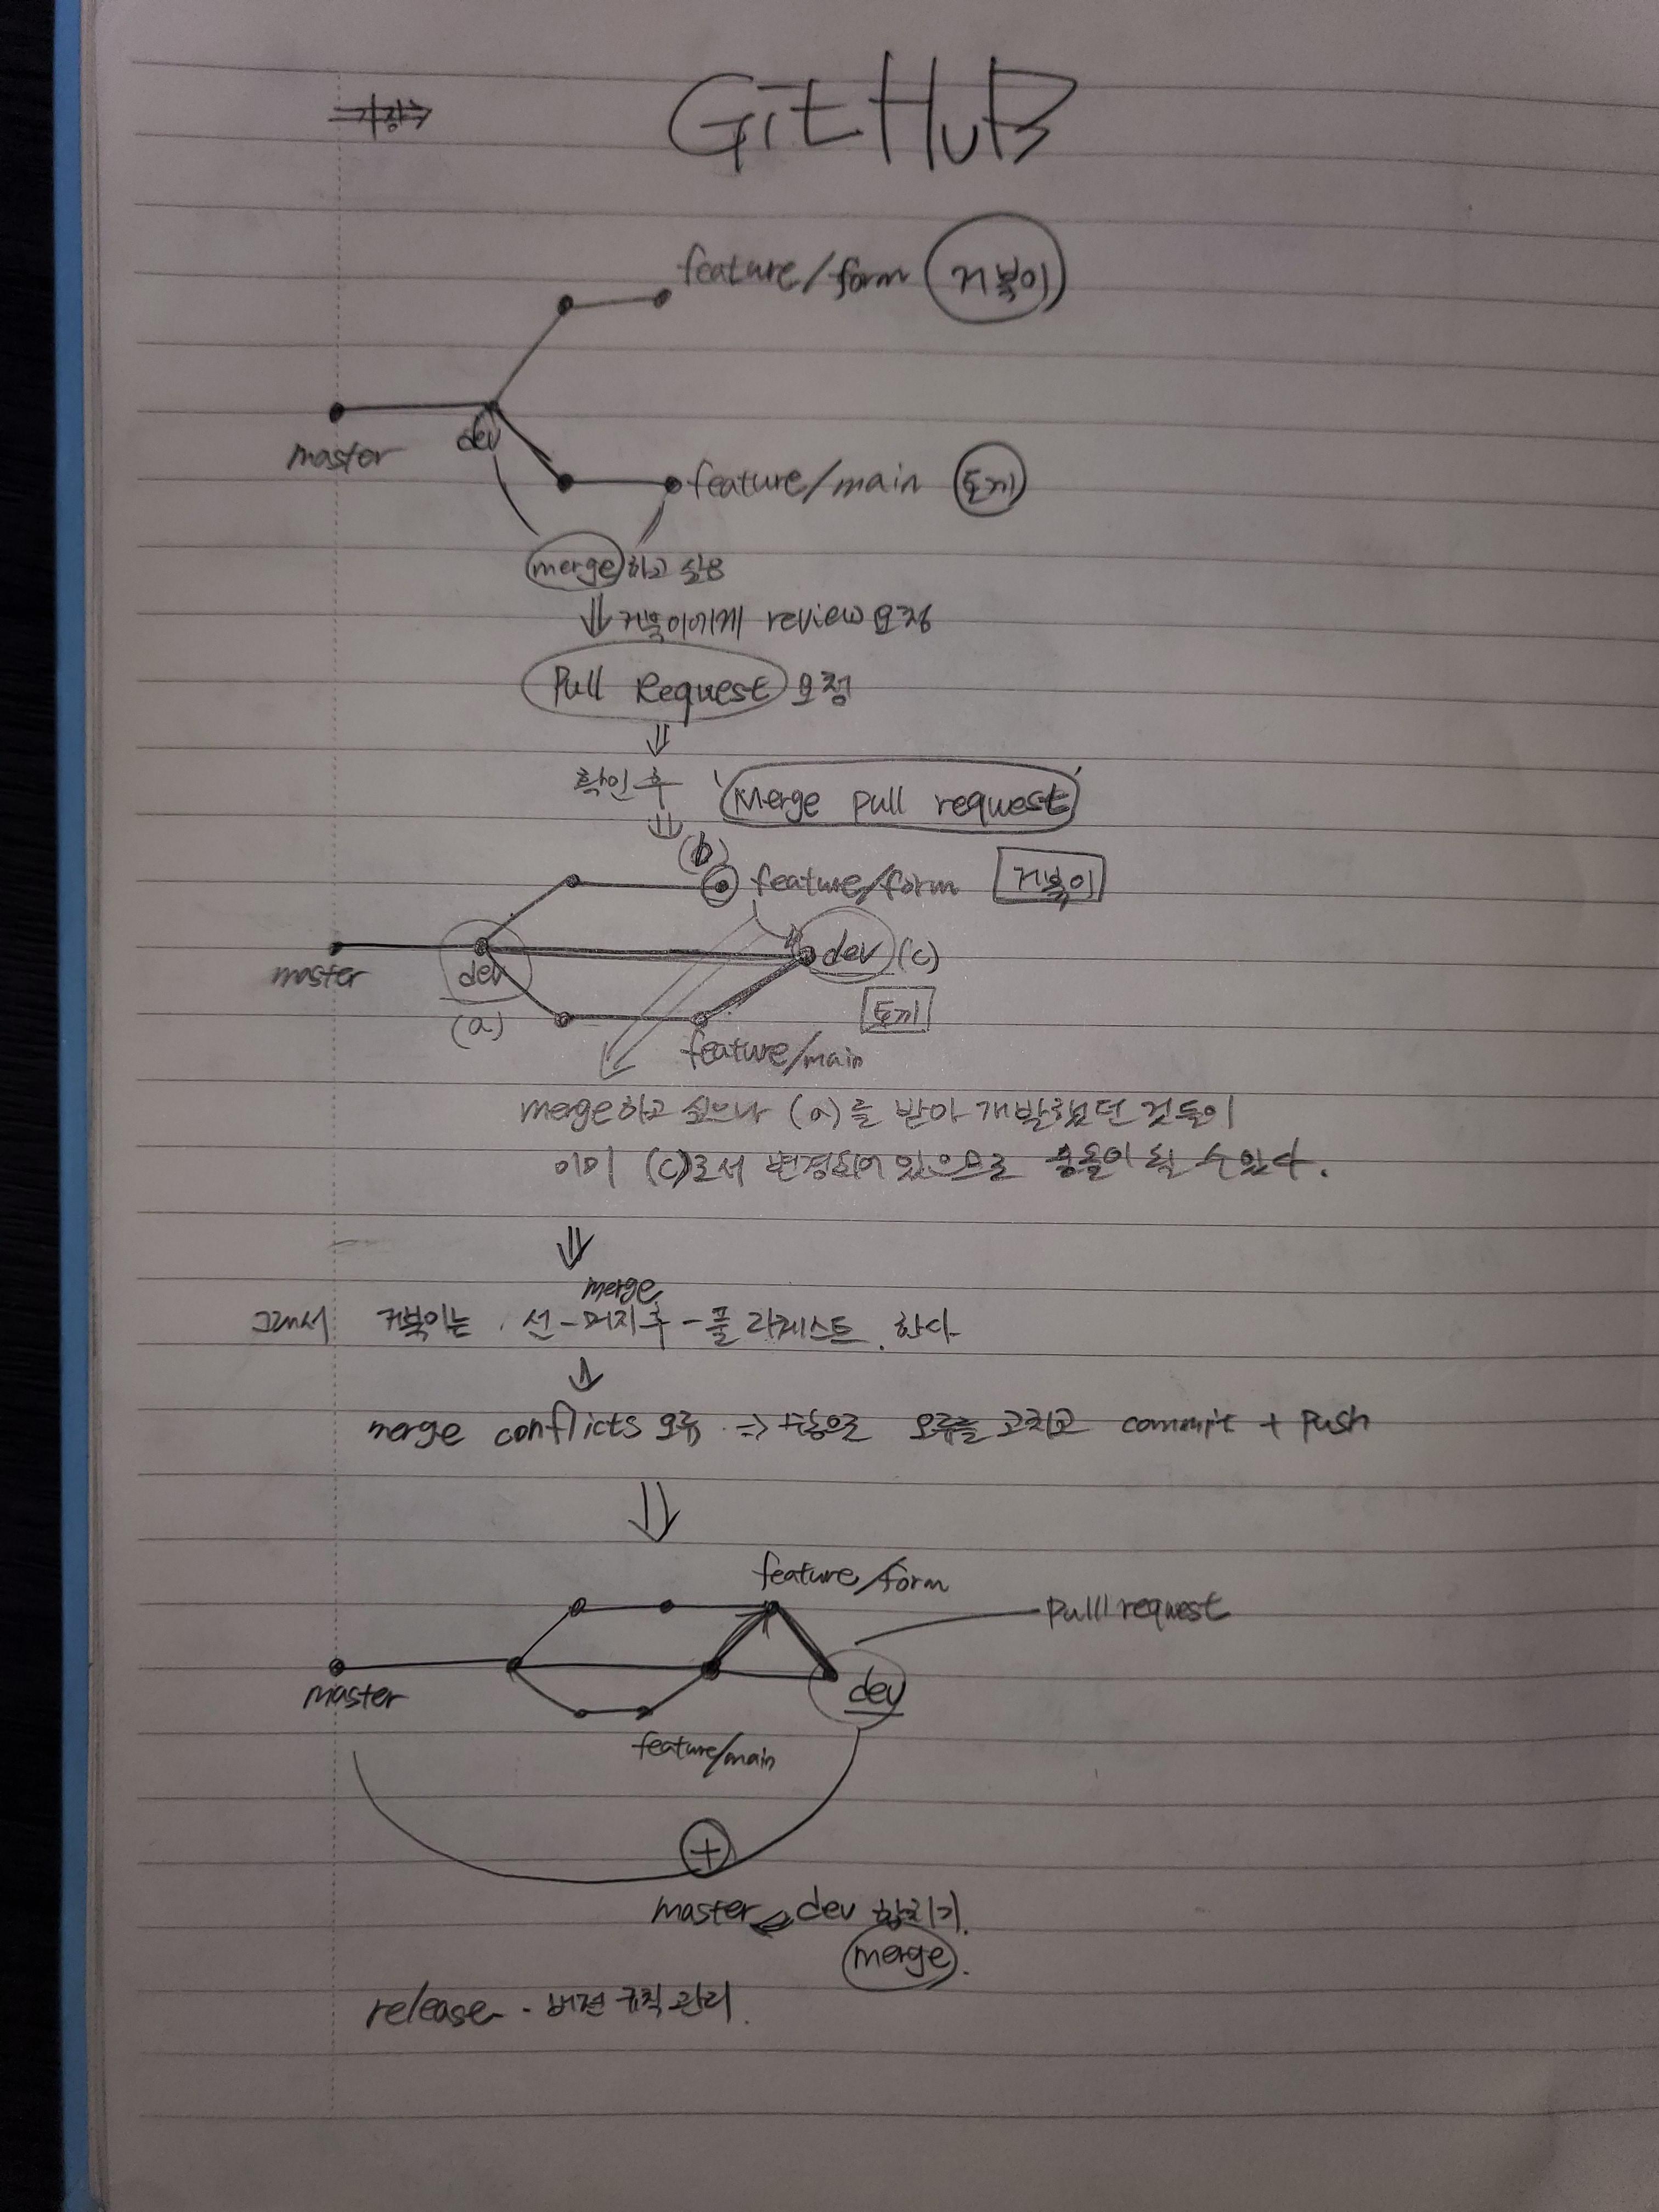 GitHuB
feature/form 거북이
master dev
feature/main 토끼
merge 하고 싶음
⇓ 거북이에게 review 요청
Pull Request 요청
⇓
확인 후 'Merge pull request'
⇓
(b)
feature/form 거북이
master dev dev (c)
(a) 토끼
feature/main
merge하고 싶으나 (a)를 받아 개발했던 것들이
이미 (c)로서 변경되어 있으므로 충돌이 될 수 있다.
⇓
merge
그래서 거북이는 선-머지 후-풀 리퀘스트 한다
↓
merge conflicts 오류 ⇒ 수동으로 오류를 고치고 commit + push
⇓
feature/form
pull request
master dev
feature/main
+
master ⇐ dev 합치기.
merge.
release - 버전 규칙 관리.